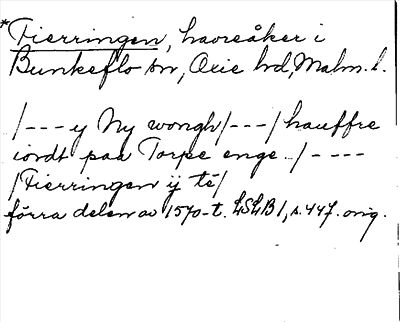 *Fierringen, havreåker i
Bunkeflo sn, Oxie hd, Malm. l.
/---y Ny wongh/---/ hauffre
iordt paa Torpe enge../----
/Fierringen ÿ té/
förra delen av 1570-t. LSLB 1, s. 447. orig.